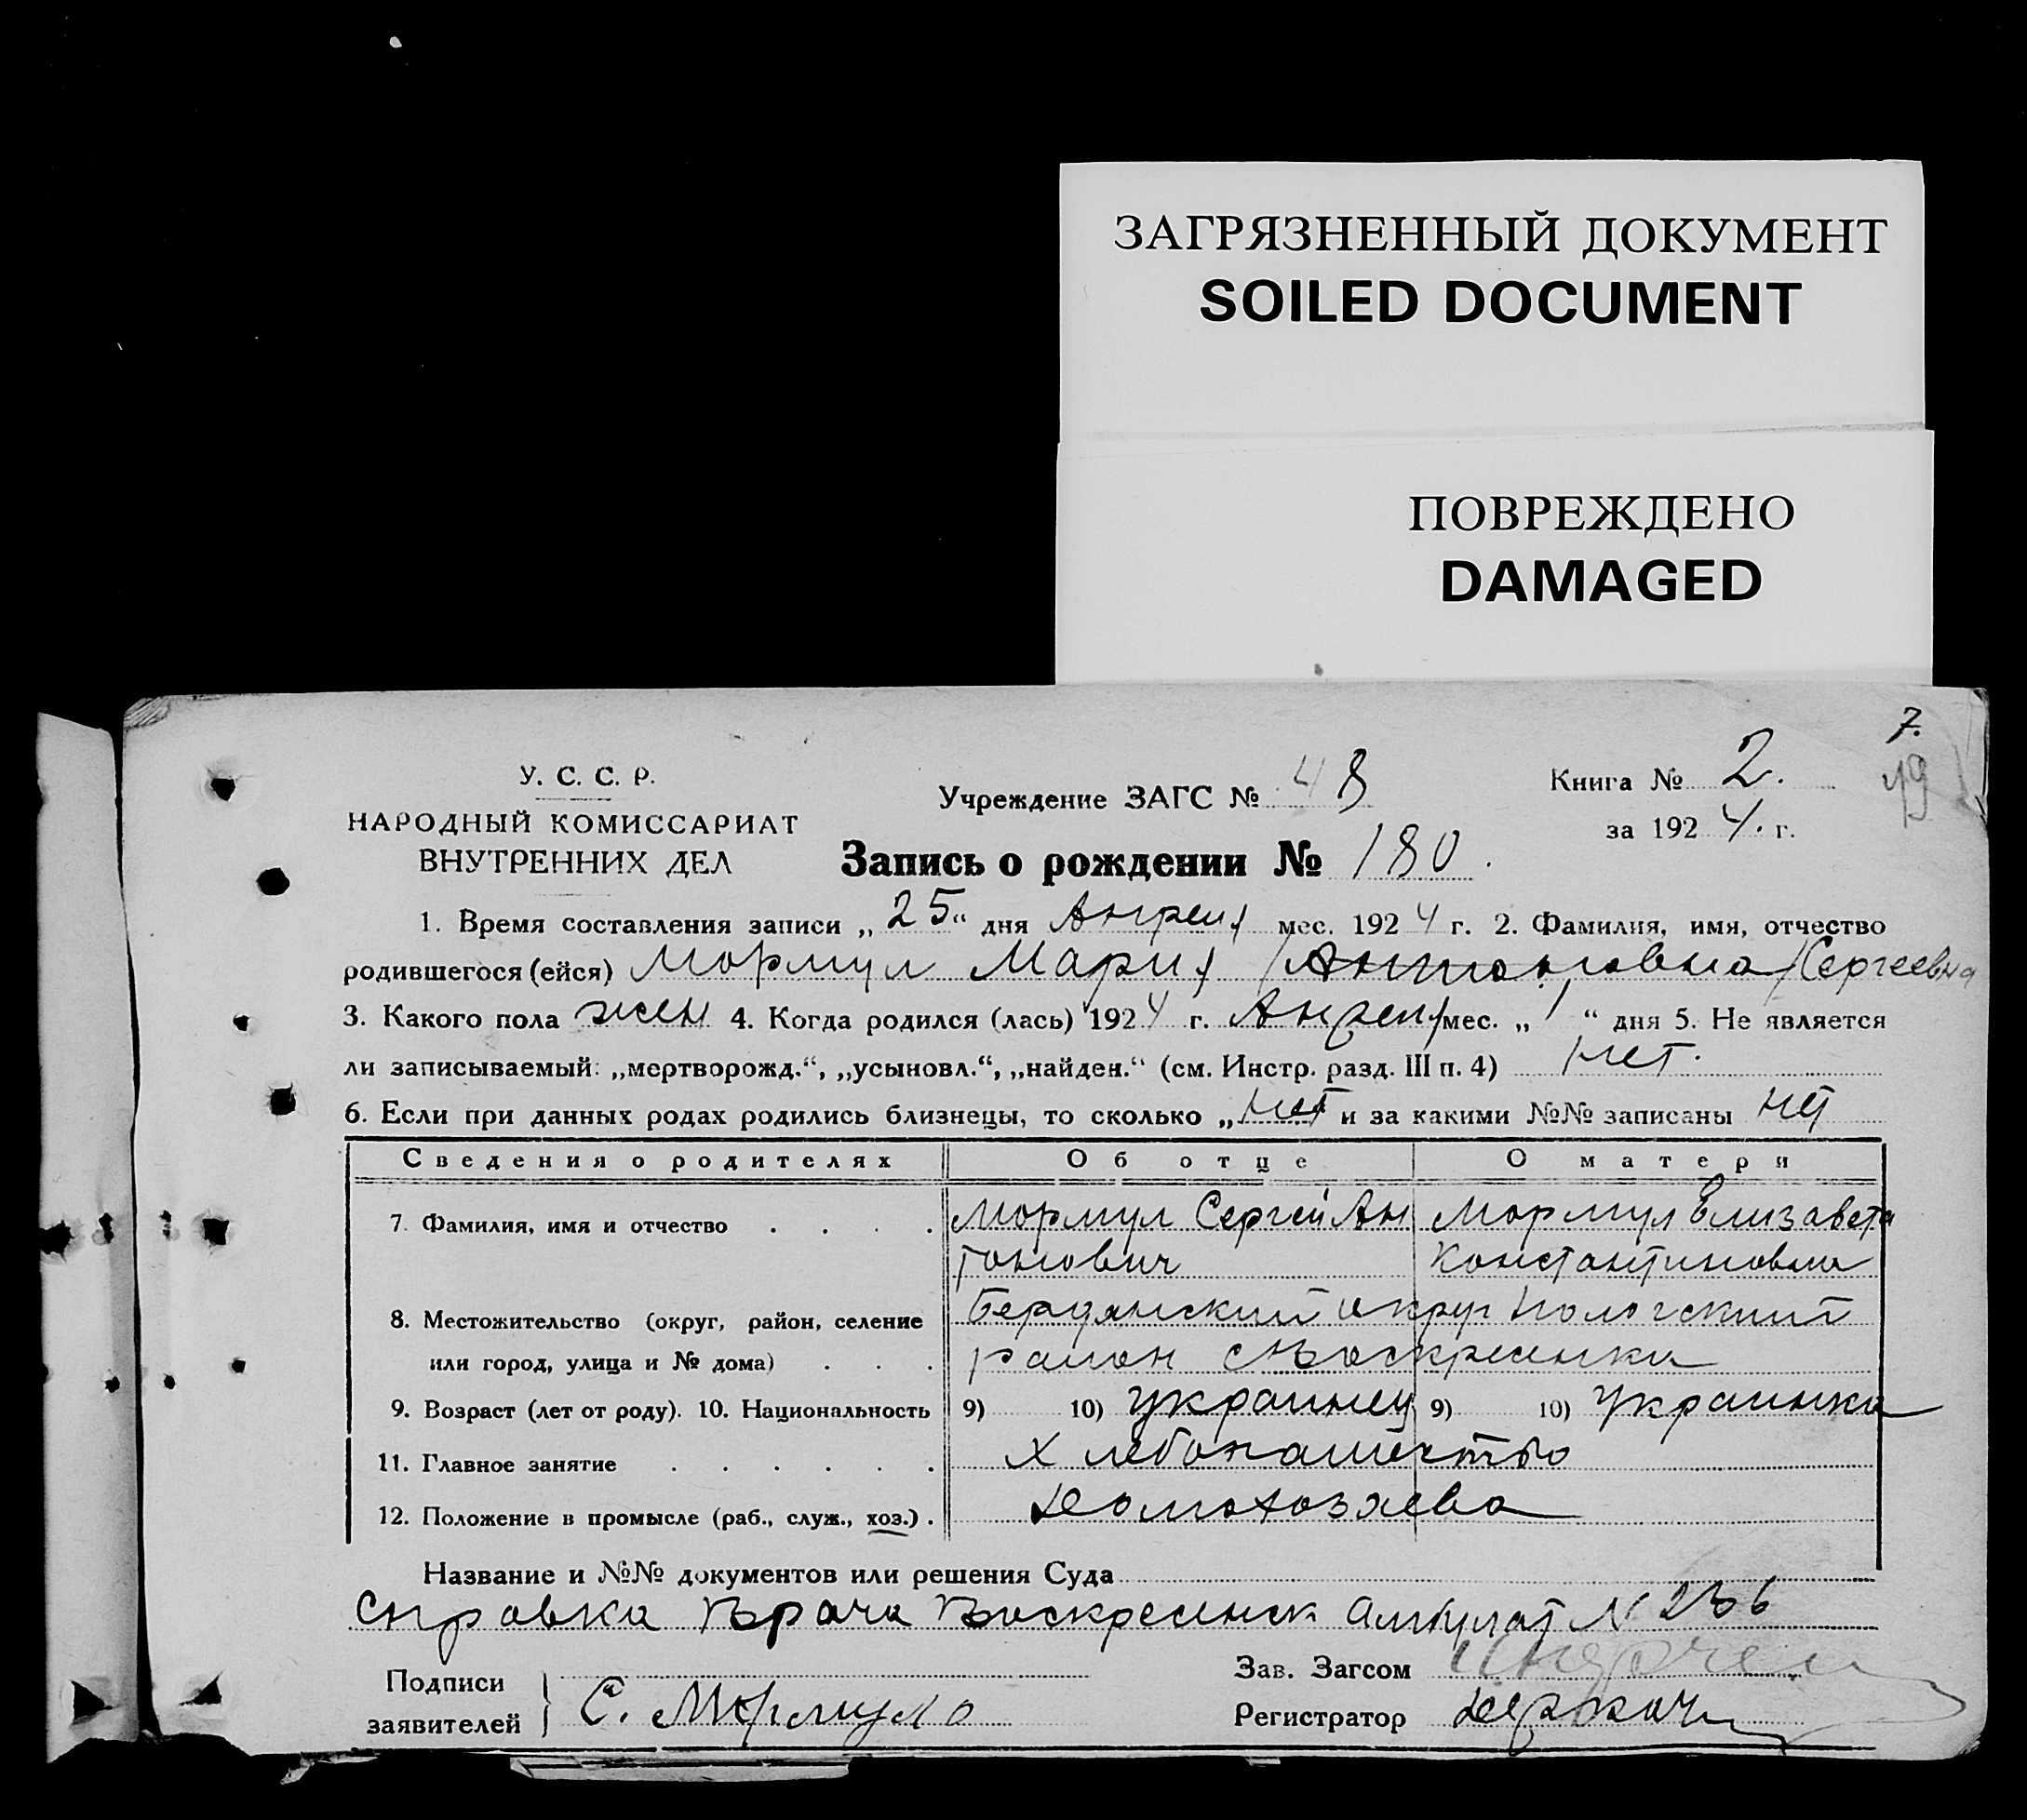 ЗАГРЯЗНЕННЫЙ ДОКУМЕНТ
SOILED DOCUMENT
ПОВРЕЖДЕНО
DAMAGED
7.
49
У. С. С. Р.
НАРОДНЫЙ КОМИССАРИАТ
ВНУТРЕННИХ ДЕЛ
Учреждение ЗАГС № 48
Книга № 2.
за 1924. г.
Запись о рождении № 180.
1. Время составления записи „25“ дня Апреля мес. 1924 г. 2. Фамилия, имя, отчество
родившегося (ейся) Мормул Мария Антоновна Сергеевна
3. Какого пола жен 4. Когда родился (лась) 1924 г. Апреля мес. „1“ дня 5. Не является
ли записываемый: „мертворожд.“, „усыновл.“, „найден.“ (см. Инстр. разд. III п. 4) нет.
6. Если при данных родах родились близнецы, то сколько „нет и за какими №№ записаны нет
Сведения о родителях Об отце О матери
7. Фамилия, имя и отчество . . . . Мормул Сергей Ан Мормул Елизавета
тонович Константиновна
8. Местожительство (округ, район, селение Бердянский округ Пологский
или город, улица и № дома) . . . район с Воскресенка
9. Возраст (лет от роду). 10. Национальность 9) 10) украинец 9) 10) Украинка
11. Главное занятие . . . . . . Хлебопашество
12. Положение в промысле (раб., служ., хоз.) . Домохозяева
Название и №№ документов или решения Суда
Справка Врача Воскресенск Амбулат N 236
Подписи
заявителей
С. Мормуло
Зав. Загсом
Регистратор Деркач